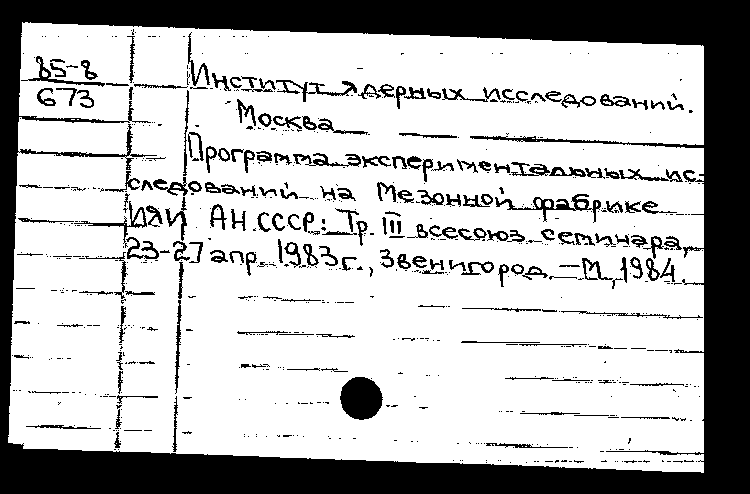 85-8
673
Институт ядерных исследований.
Москва
Программа экспериментальных ис-
следований на Мезонной фабрике
ИЯИ АН СССР: Тр. III всесоюз. семинара,
23-27 апр. 1983г., Звенигород. – М., 1984.